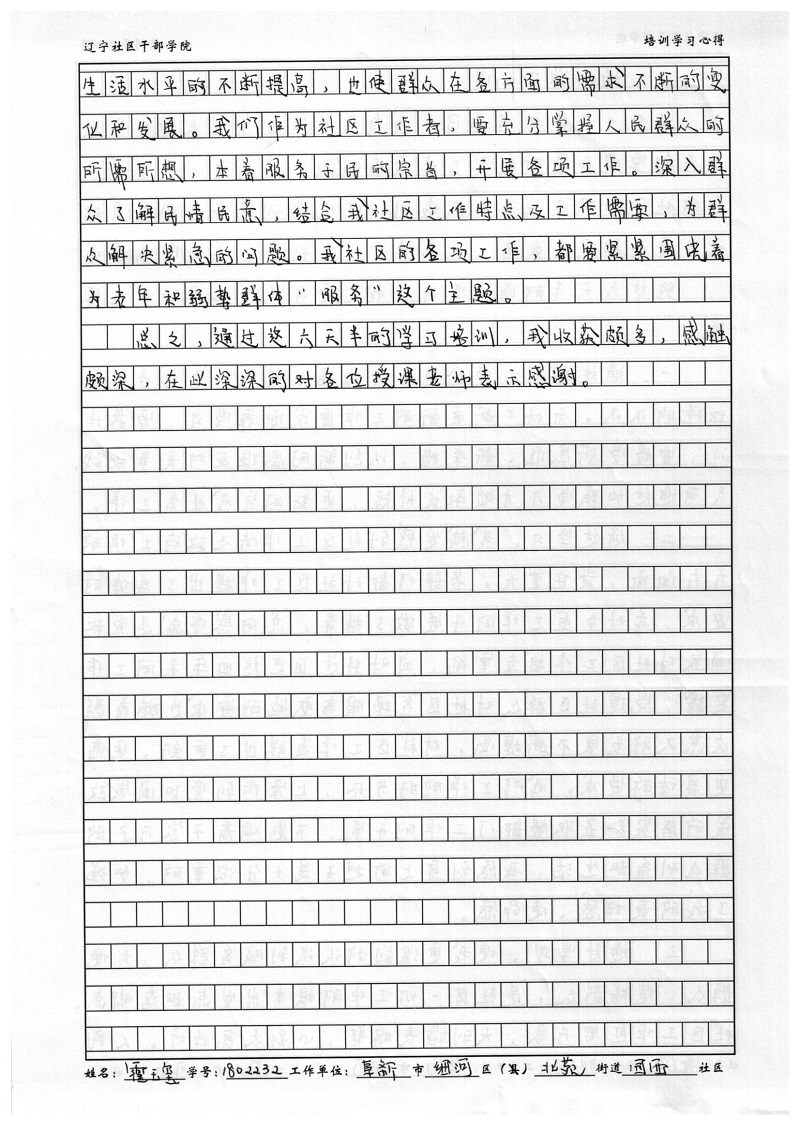 辽宁社区干部学院 培训学习心得
生活水平的不断提高，也使群众在各方面的需求不断的变
化和发展。我们作为社区工作者，要充分掌握人民群众的
所需所想，本着服务于民的宗旨，开展各项工作。深入群
众了解民情民意，结合我社区工作特点及工作需要，为群
众解决紧急的问题。我社区的各项工作，都要紧紧围绕着
为老年和弱势群体“服务”这个主题。
总之，通过这六天半的学习培训，我收获颇多，感触
颇深，在此深深的对各位授课老师表示感谢。
姓名： 学号：1802232 工作单位：阜新 市 细河 区（县） 北苑 街道 社区